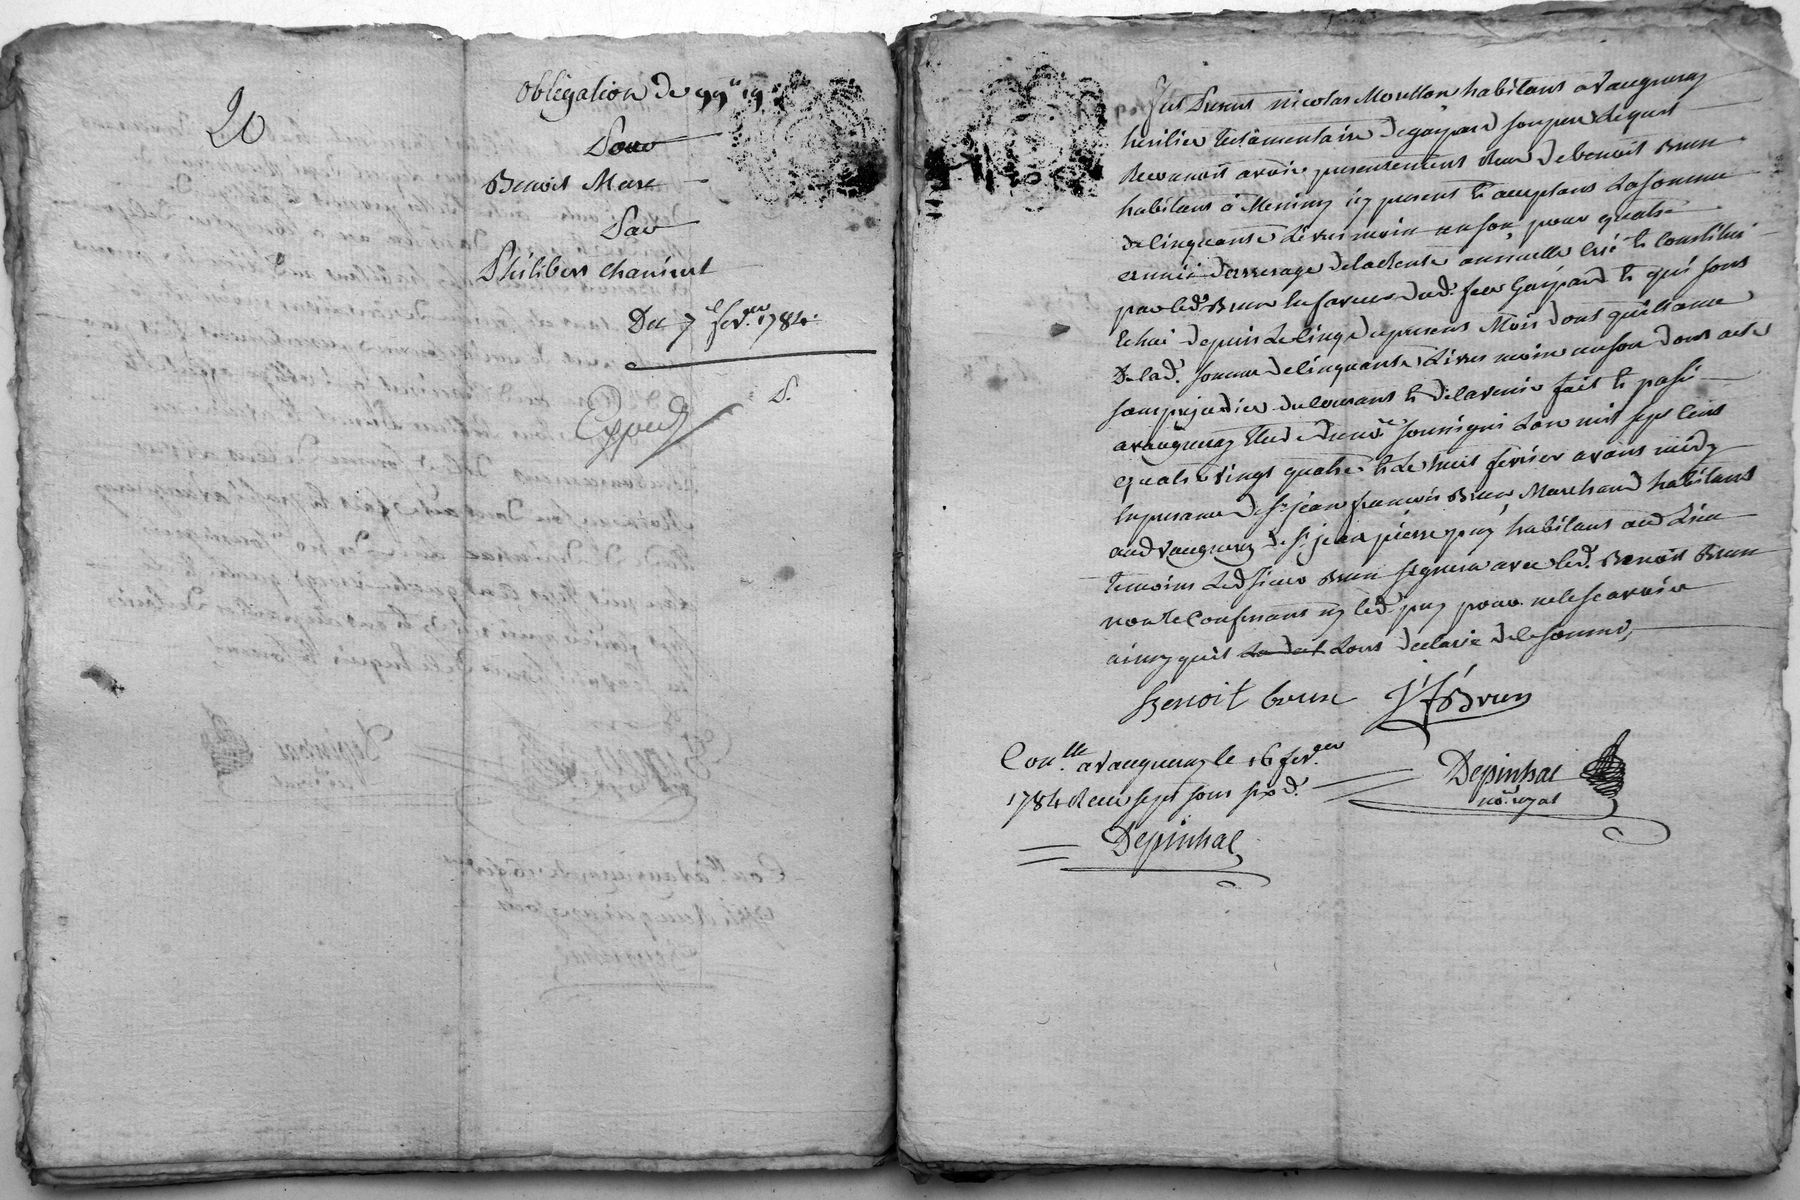 20
Obligation de 99ᵗᵗ 19ˢ
Pour
Benoit Mure
Par
Philibert chanivet
Du 7ᵉ fev.ᵉʳ 1784.
Exped
Fut Present nicolas Morellon habitant a Vaugneray
heritier Testamentaire de gaspard son pere lequel
Reconnoit avoir presentement Reçu de benoit Brun
habitant à Messimy icy present et acceptant La somme
de Cinquante Livres moin un sou pour quatre
année d'arrerage de la Rente annuelle Créé et Constitué
par led. Brun en faveur dud. feu Gaspard et qui sont
Echue depuis le cinq du present Mois dont quittance
De lad. somme de cinquante Livres moin un sou dont acte
sans prejudice du courant et de l'avenir fait et passé
a vaugneray Etude du no.ʳᵉ soussigné L'an mil sept cent
quatre vingt quatre et Le huit fevrier avant midy
En presence de S.ʳ jean francois Brun Marchand habitant
aud Vaugneray de S.ʳ jean pierre puy habitant aud Lieu
temoins Led Sieur Brun Signera avec led. Benoit Brun
non Le Confessant ny led. puy pour ne le scavoir
ainsy quil L'ont declaré de ce sommé,
Benoit brun J f Brun
Depinhac
no.ʳᵉ royal
Con.ˡˡᵉ a vaugneray le 16 fev.ʳⁱᵉʳ
1784 Recu sept sous six d.
Depinhac